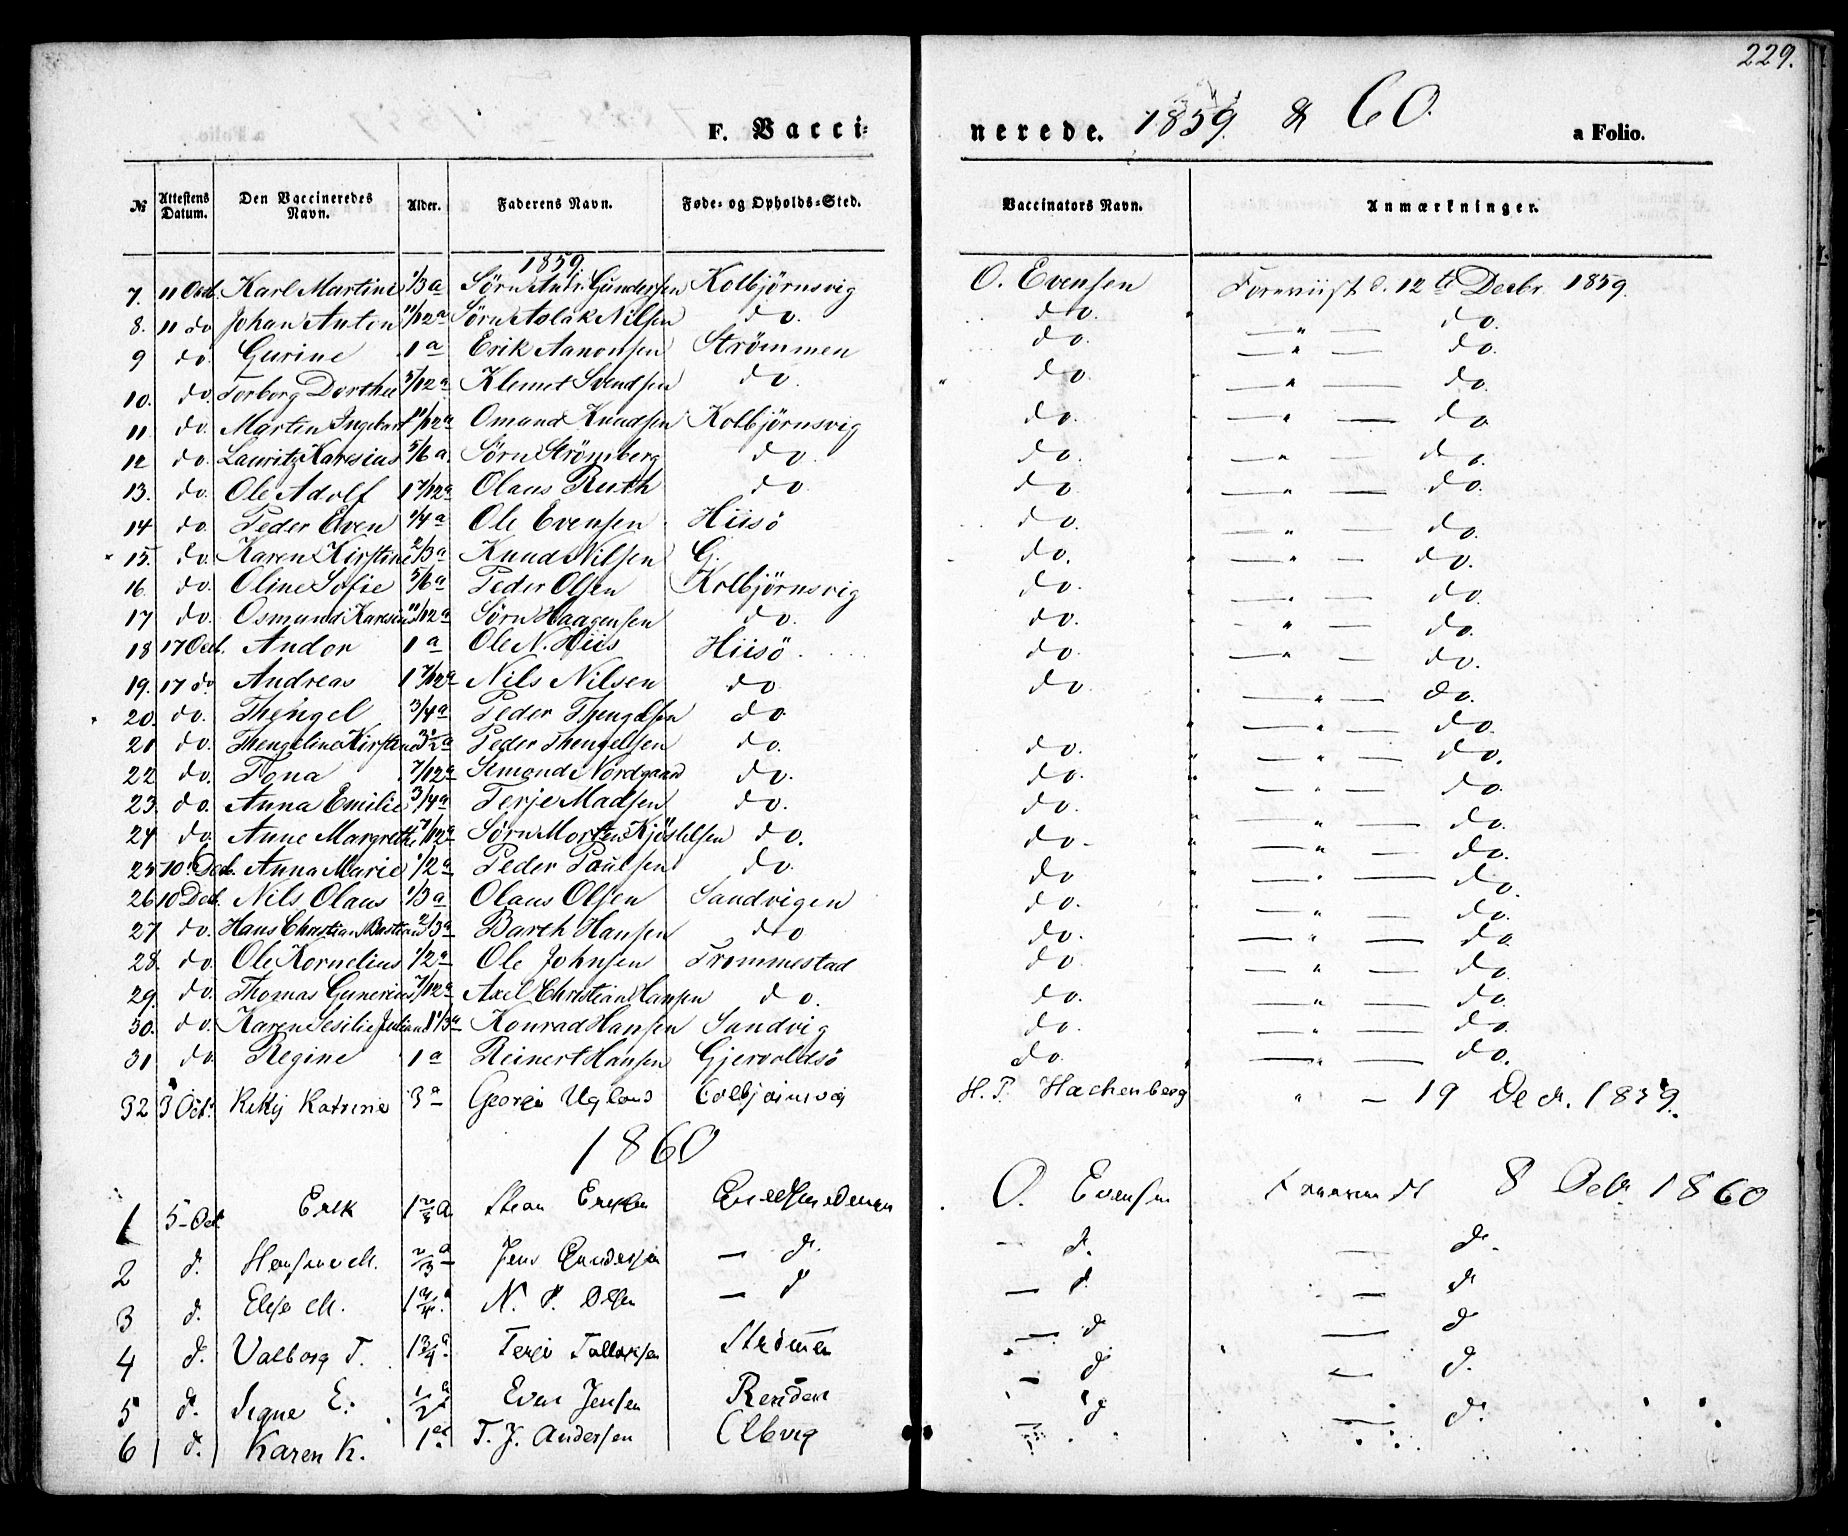 229.
F. Vaccinerede. 1859 & 60. a Folio.
№ | Attestens Datum. | Den Vaccineredes Navn. | Alder. | Faderens Navn. | Føde- og Opholds-Sted. | Vaccinators Navn. | Anmærkninger.
1859
7. 11 Octb. Karl Martine 1/3 a Sörn Antr. Gundersen Kolbjörnsvig O. Evensen Foreviist d. 12te Decbr 1859.
8. 11 do Johan Anton 11/12 a Sörn Aslak Nilsen do. do. — " — do.
9 do Gurine 1 a Erik Aanonsen Strömmen do. — " — do.
10. do. Torborg Dorthea 5/12 a Klemet Svendsen do. do. — " — do.
11 do. Marten Ingebret 11/12 a Omund Knudsen Kolbjörnsvig do. — " — do
12 do. Lauritz Karesius 5/6 a. Sörn Strömberg do. do. — " — do.
13. do. Ole Adolf 1 7/12 a Olaus Ruth do do — " — do.
14 do. Peder Even 1/4 a Ole Evensen Hiisö do. — " — do.
15. do. Karen Kirstine 2/3 a Knud Nilsen G. do. — " — do.
16 do. Oline Sofie 5/6 a Peder Olsen Kolbjörnsvig do. — " — do.
17 do. Osmund Karesius 11/12 a Sörn Haagensen do. do. — " — do.
18 17 Octb. Andor 1 a Ole N. Hiis Hiisö do. — " — do.
19. 17 do. Andreas 1 7/12 a Nils Nilsen do do — " — do.
20. do. Thengel 3/4 a Peder Thengelsen do — " — do.
21 do. Thengeline Kirstine 3 1/2 a Peder Thengelsen do. do. — " — do.
22 do. Tona 7/12 a Simond Nordgaard do. do. — " — do.
23. do. Anna Emilie 3/4 a Terje Madsen do. do. — " — do.
24 do. Anne Margrethe 7/12 a Sörn Morten Kjöstelsen do. do. — " — do.
25 10. Decb. Anna Marie 1/2 a Peder Paulsen do. do — " — do.
26 10 Decb. Nils Olaus 1/3 a Olaus Olsen Sandvigen do. — " — do.
27 do. Hans Christian Bastian 2/3 a Barth Hansen do do. — " — do
28. do. Ole Kornelius 1/2 a Ole Johnsen Trommestad do — " — do.
29. do. Thomas Gunerius 7/12 a Axel Christian Hansen do. do. — " — do.
30. do. Karen Sesilie Juliane 1 1/3 a Konrad Hansen Sandvig do. — " — do.
31 do Regine 1 a Reinert Hansen Gjervoldsö do. — " — do.
32 3 Oct. Katrine 3 a Georg Ugland Colbjörnsvig H. P. Hachenberg " — 19 Dec. 1859.
1860
1 5-Oct. Erik 1 2/3 a Erksen O. Evensen 8 Octbr 1860
2 d. Hansine M. 2/3 a Jens Gundersen — d. — d. — d.
3 d. Elise M. 1 3/4 a N. P. Olsen — d — d — d
4 d. Valborg T. 1 3/4 a. Terje Tallaksen Strömen — d — d
5 d. Signe E. 1/2 a Even Jensen Revdal — d — d.
6 d. Karen K. 1 a T. J. Andersen Elbvig — d — d.